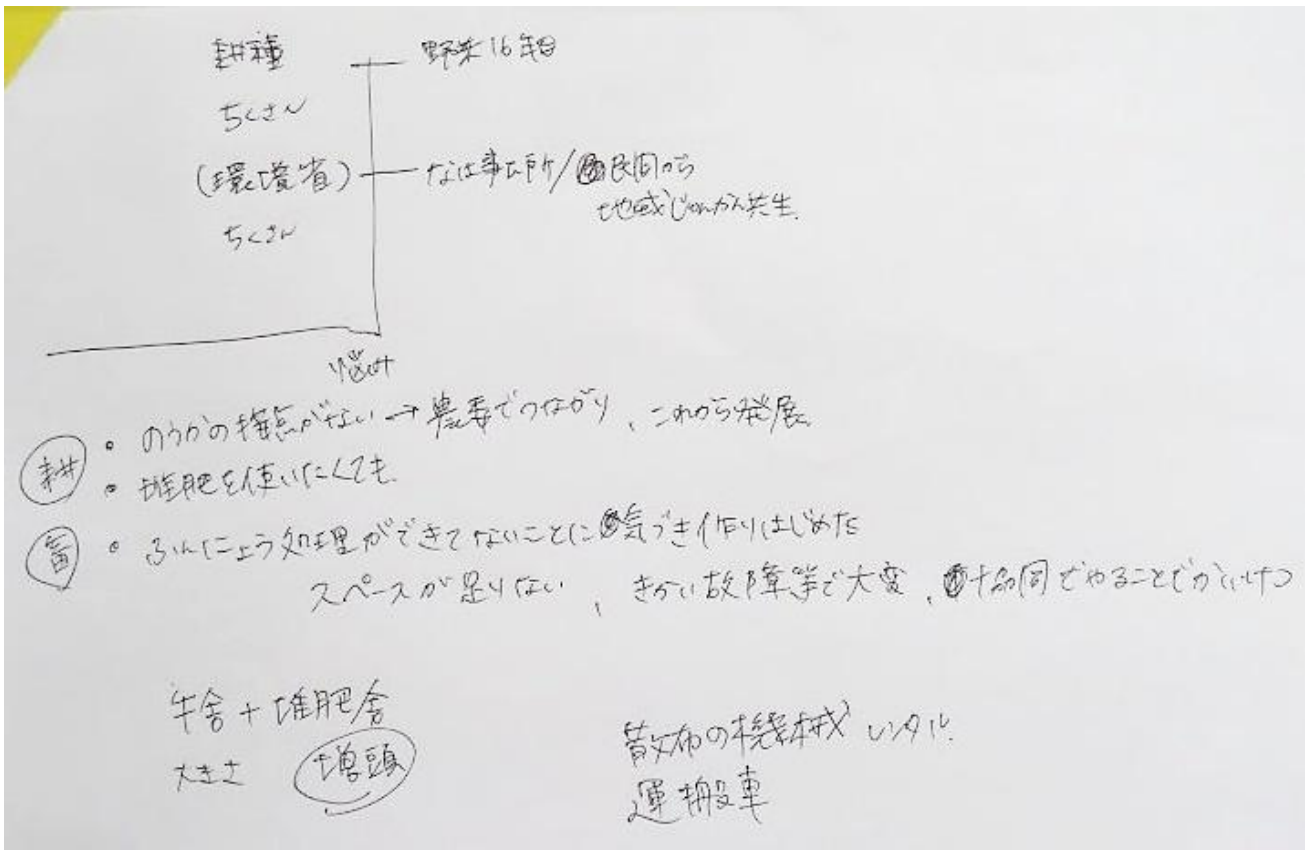 耕種 野菜16年目
ちくさん
(環境省) なは事ム所/民間から
地域じゅんかん共生
ちくさん
悩み
耕 ・のうかの接点がない→農委でつながり、これから発展
・堆肥を使いたくても
畜 ・ふんにょう処理ができてないことに気づき作りはじめた
スペースが足りない、きかい故障等で大変、協同でやることでかいけつ
牛舎+堆肥舎
大きさ 増頭
散布の機械 レンタル
運搬車